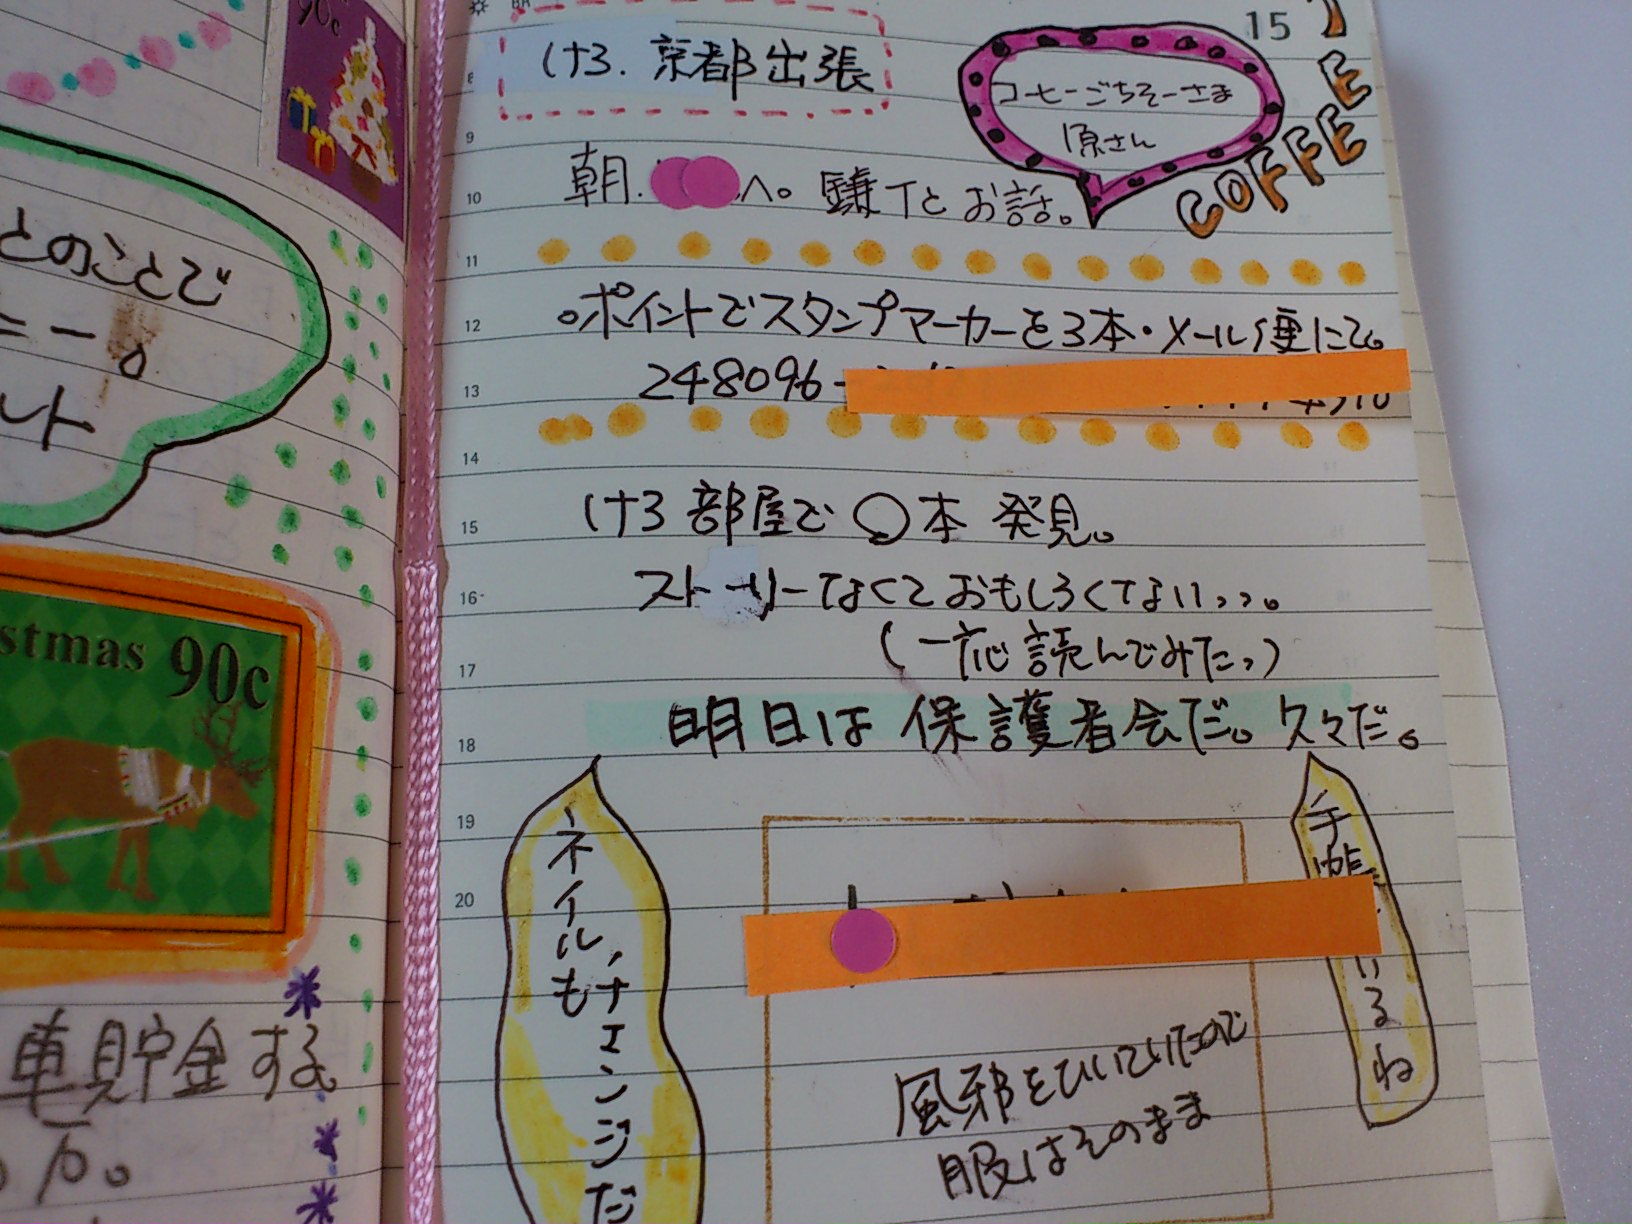 90c
とのことで
ニー。
ルト
stmas 90c
車貯金する。
か。
15
8
けろ. 京都出張
コーヒーごちそーさま
原さん
COFFEE
9
朝.
へ。鎌Tとお話。
10
11
12
。ポイントでスタンプマーカーを3本・メール便にて。
13
248096-
14
15
けろ部屋で〇本 発見。
16
ストーリーなくておもしろくてない、、、。
17
(一応読んでみた、、)
18
明日は保護者会だ。久々だ。
19
20
ネイルも
チェンジだ
手帳
いるね
風邪をひいていたので
服はそのまま